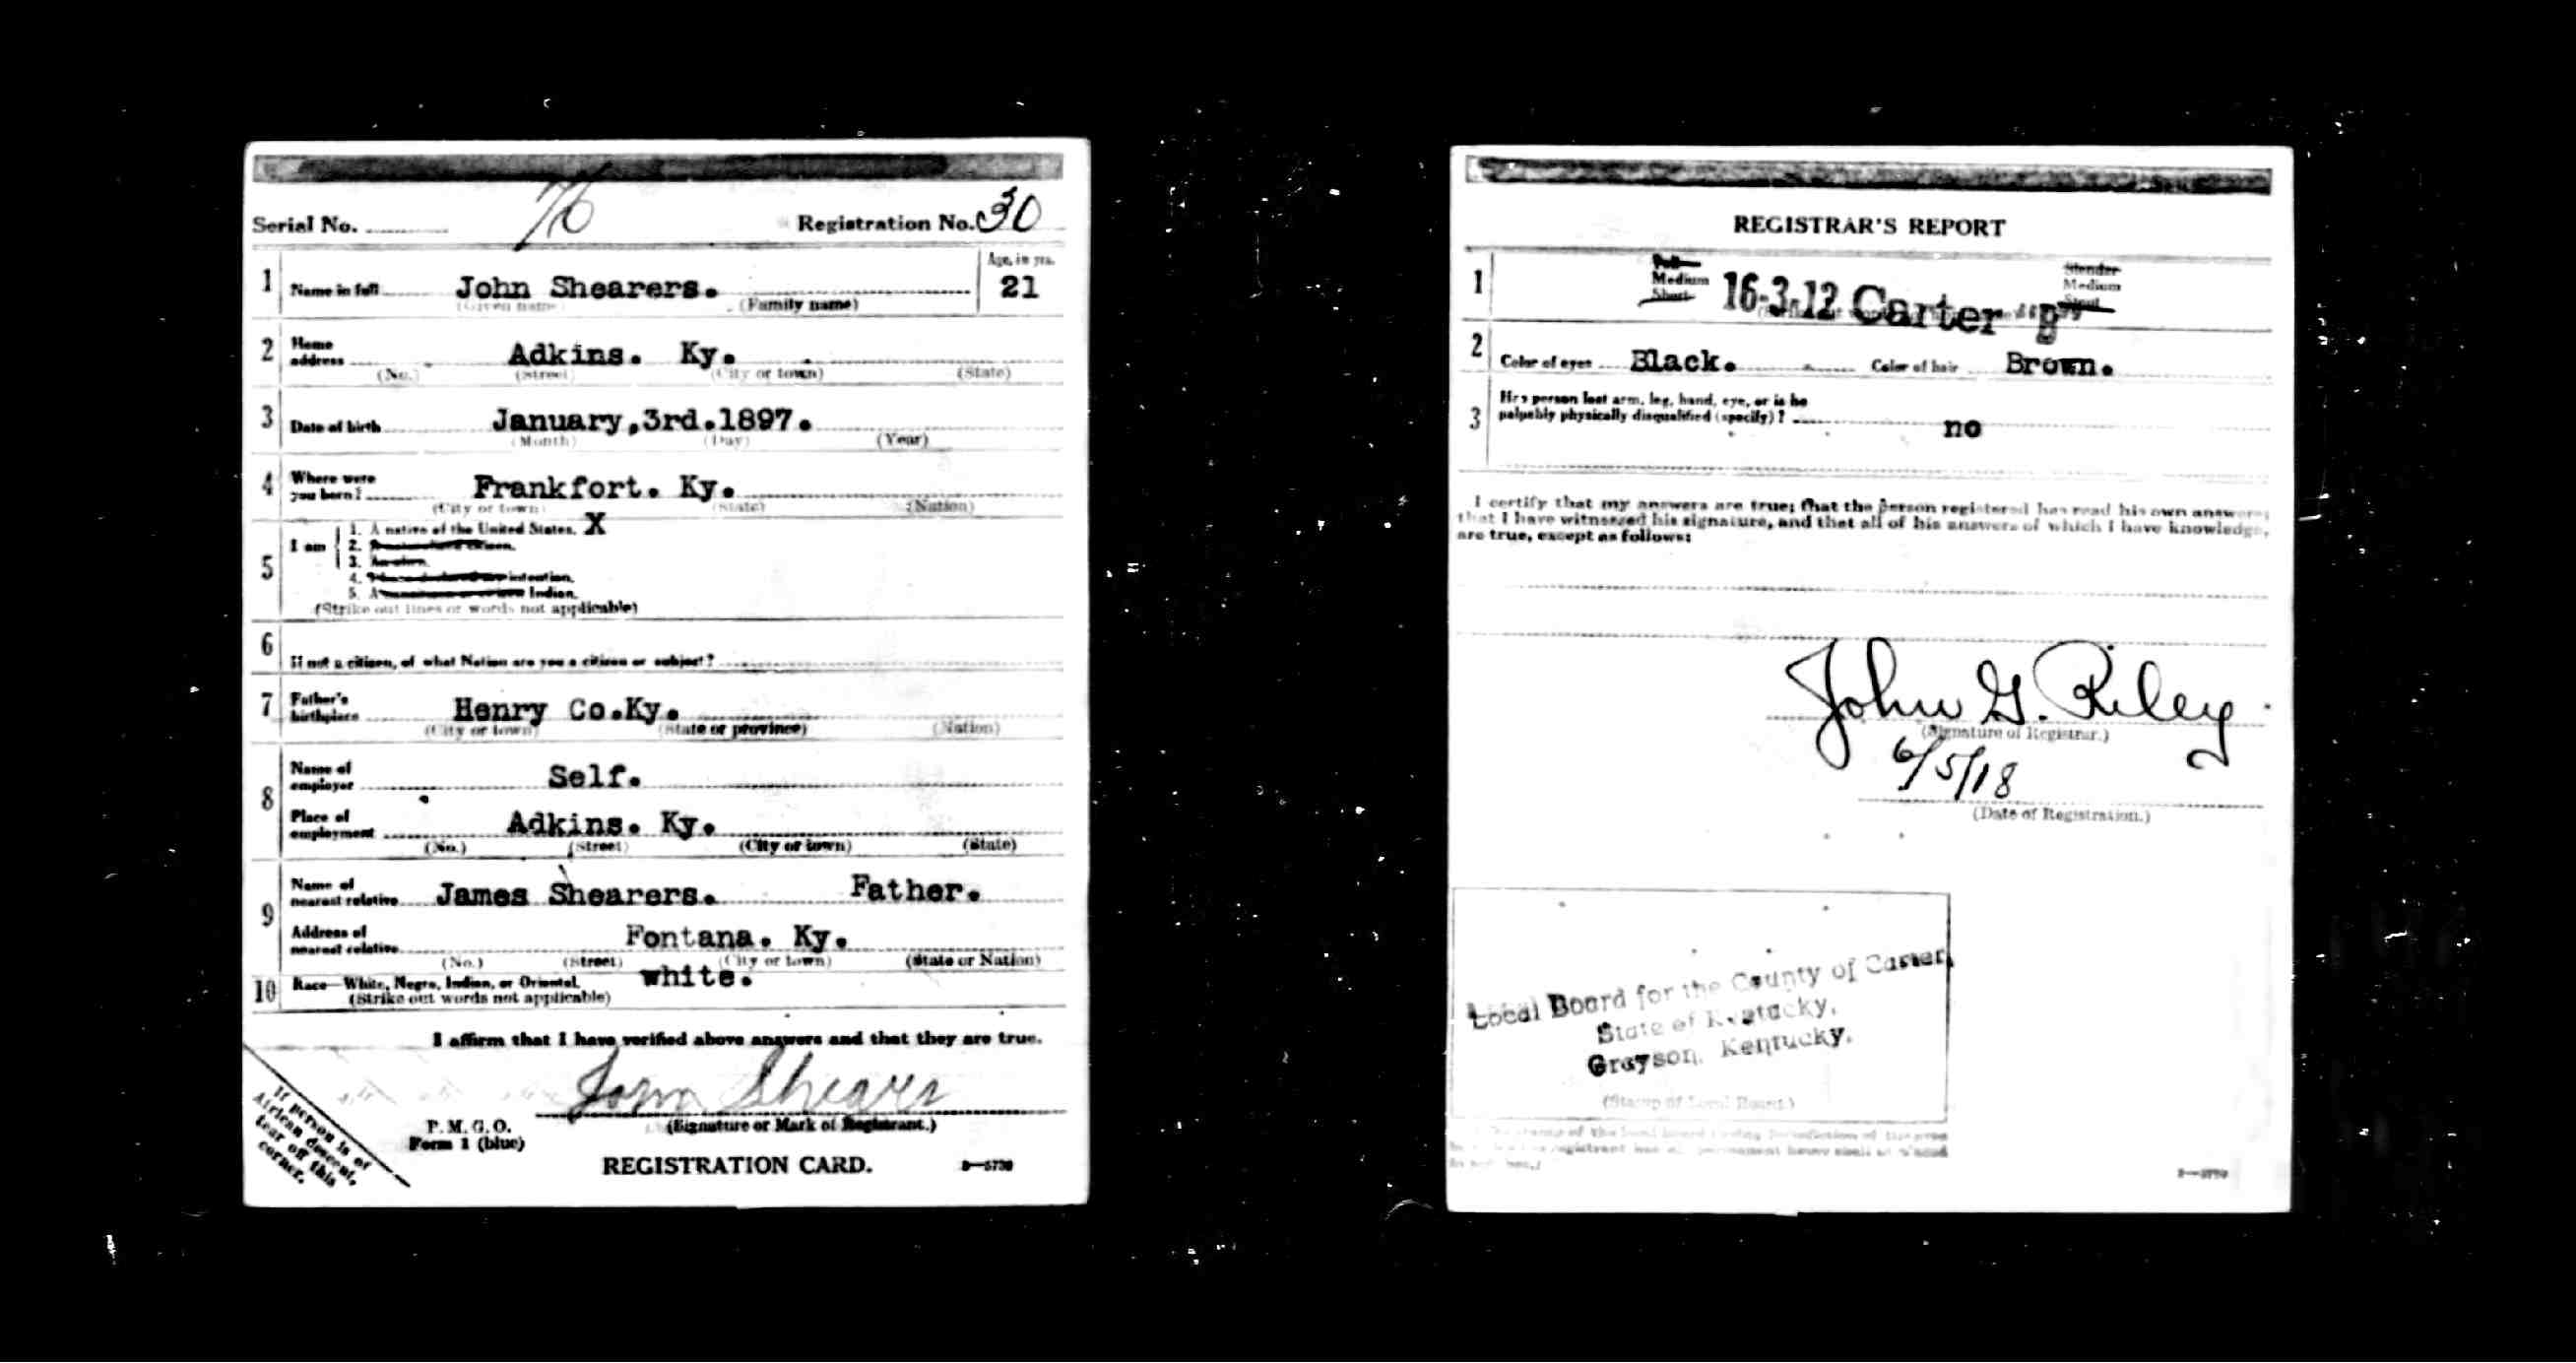 Serial No. 76 Registration No. 30
1 Name in full John Shearers. Age, in yrs. 21
(Given name) (Family name)
2 Home address Adkins. Ky.
(No.) (Street) (City or town) (State)
3 Date of birth January,3rd.1897.
(Month) (Day) (Year)
4 Where were you born? Frankfort. Ky.
(City or town) (State) (Nation)
5 I am
1. A native of the United States. X
2. citizen.
3. An alien.
4. intention.
5. A Indian.
(Strike out lines or words not applicable)
6 If not a citizen, of what Nation are you a citizen or subject?
7 Father's birthplace Henry Co.Ky.
(City or town) (State or province) (Nation)
8 Name of employer Self.
Place of employment Adkins. Ky.
(No.) (Street) (City or town) (State)
9 Name of nearest relative James Shearers. Father.
Address of nearest relative Fontana. Ky.
(No.) (Street) (City or town) (State or Nation)
10 Race—White, Negro, Indian, or Oriental. white.
(Strike out words not applicable)
I affirm that I have verified above answers and that they are true.
John Shears
(Signature or Mark of Registrant.)
P. M. G. O.
Form 1 (blue)
REGISTRATION CARD.
If person is of
African descent,
tear off this
corner.
REGISTRAR'S REPORT
1 Tall Medium Short 16-3-12 Carter "B" Slender Medium Stout
2 Color of eyes Black. Color of hair Brown.
3 Has person lost arm, leg, hand, eye, or is he
palpably physically disqualified (specify)? no
I certify that my answers are true; that the person registered has read his own answers;
that I have witnessed his signature, and that all of his answers of which I have knowledge,
are true, except as follows:
John G. Riley
(Signature of Registrar.)
6/5/18
(Date of Registration.)
Local Board for the County of Carter,
State of Kentucky,
Grayson, Kentucky.
(Stamp of Local Board.)